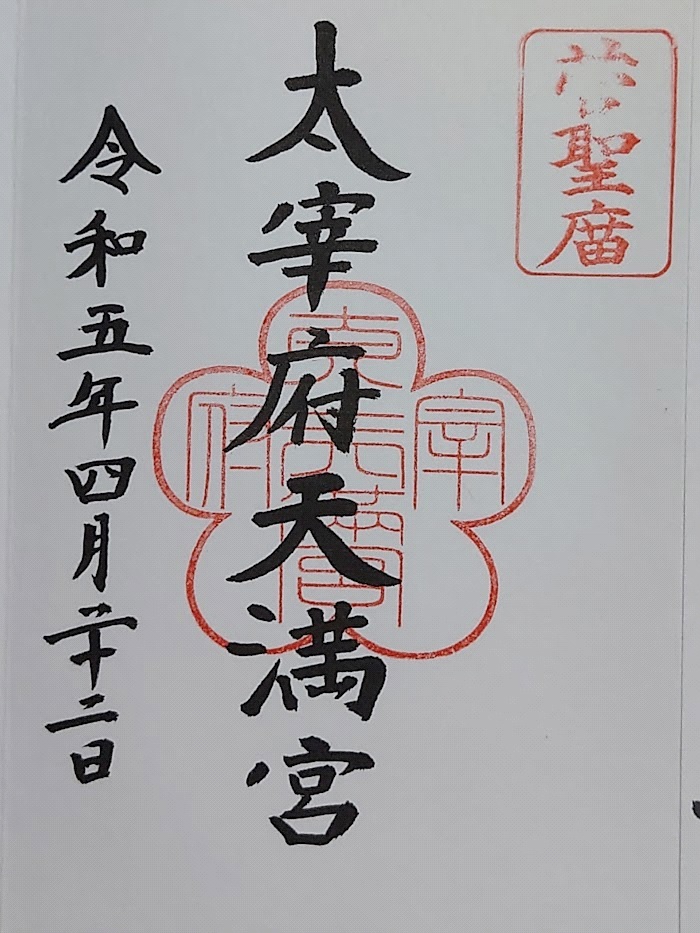 聖庿
太宰府天満宮
令和五年四月二十二日